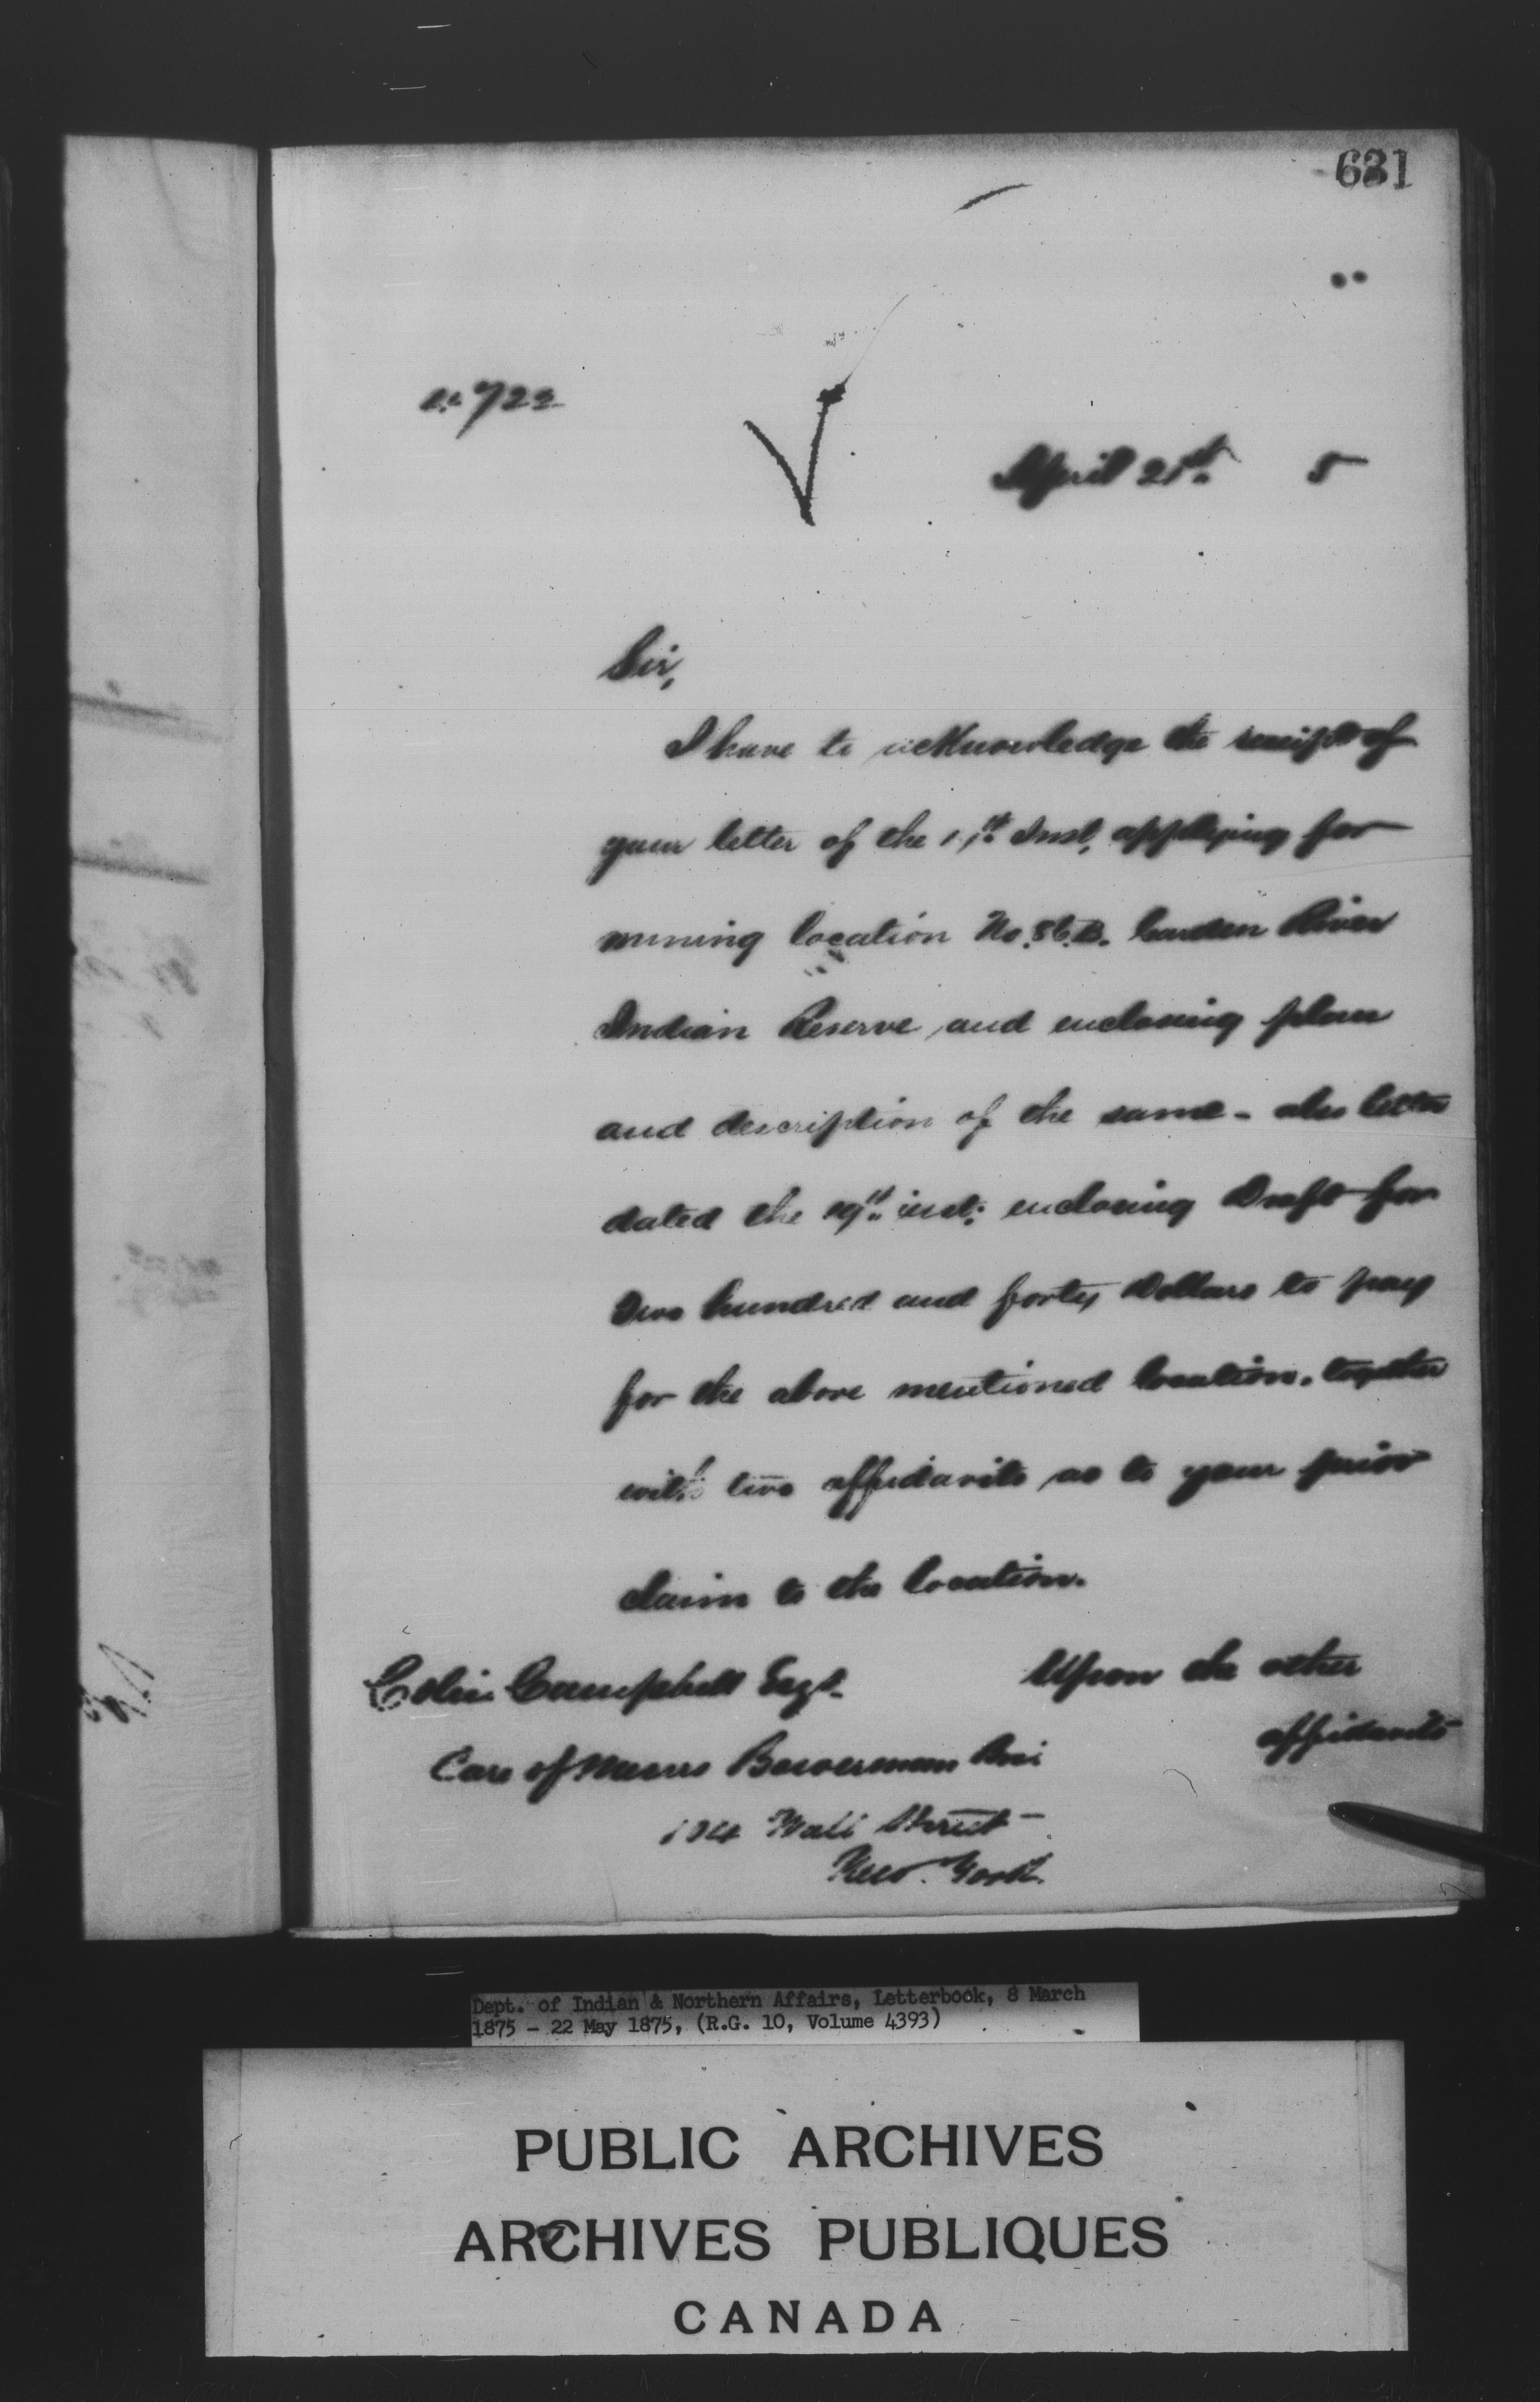 631
722
April 21st. 5
Sir,
I have to acknowledge the receipt of
your letter of the Inst, applying for
mining location No. Garden River
Indian Reserve, and enclosing plan
and description of the same - also letter
dated the inst: enclosing Draft for
Two hundred and forty Dollars to pay
for the above mentioned location, together
with two affidavits as to your prior
claim to the location.
Colin Campbell Esqr. Upon the other
affidavits
Care of Messrs Bowerman Bros
104 Wall Street
New York.
Dept. of Indian & Northern Affairs, Letterbook, 8 March
1875 - 22 May 1875, (R.G. 10, Volume 4393)
PUBLIC ARCHIVES
ARCHIVES PUBLIQUES
CANADA